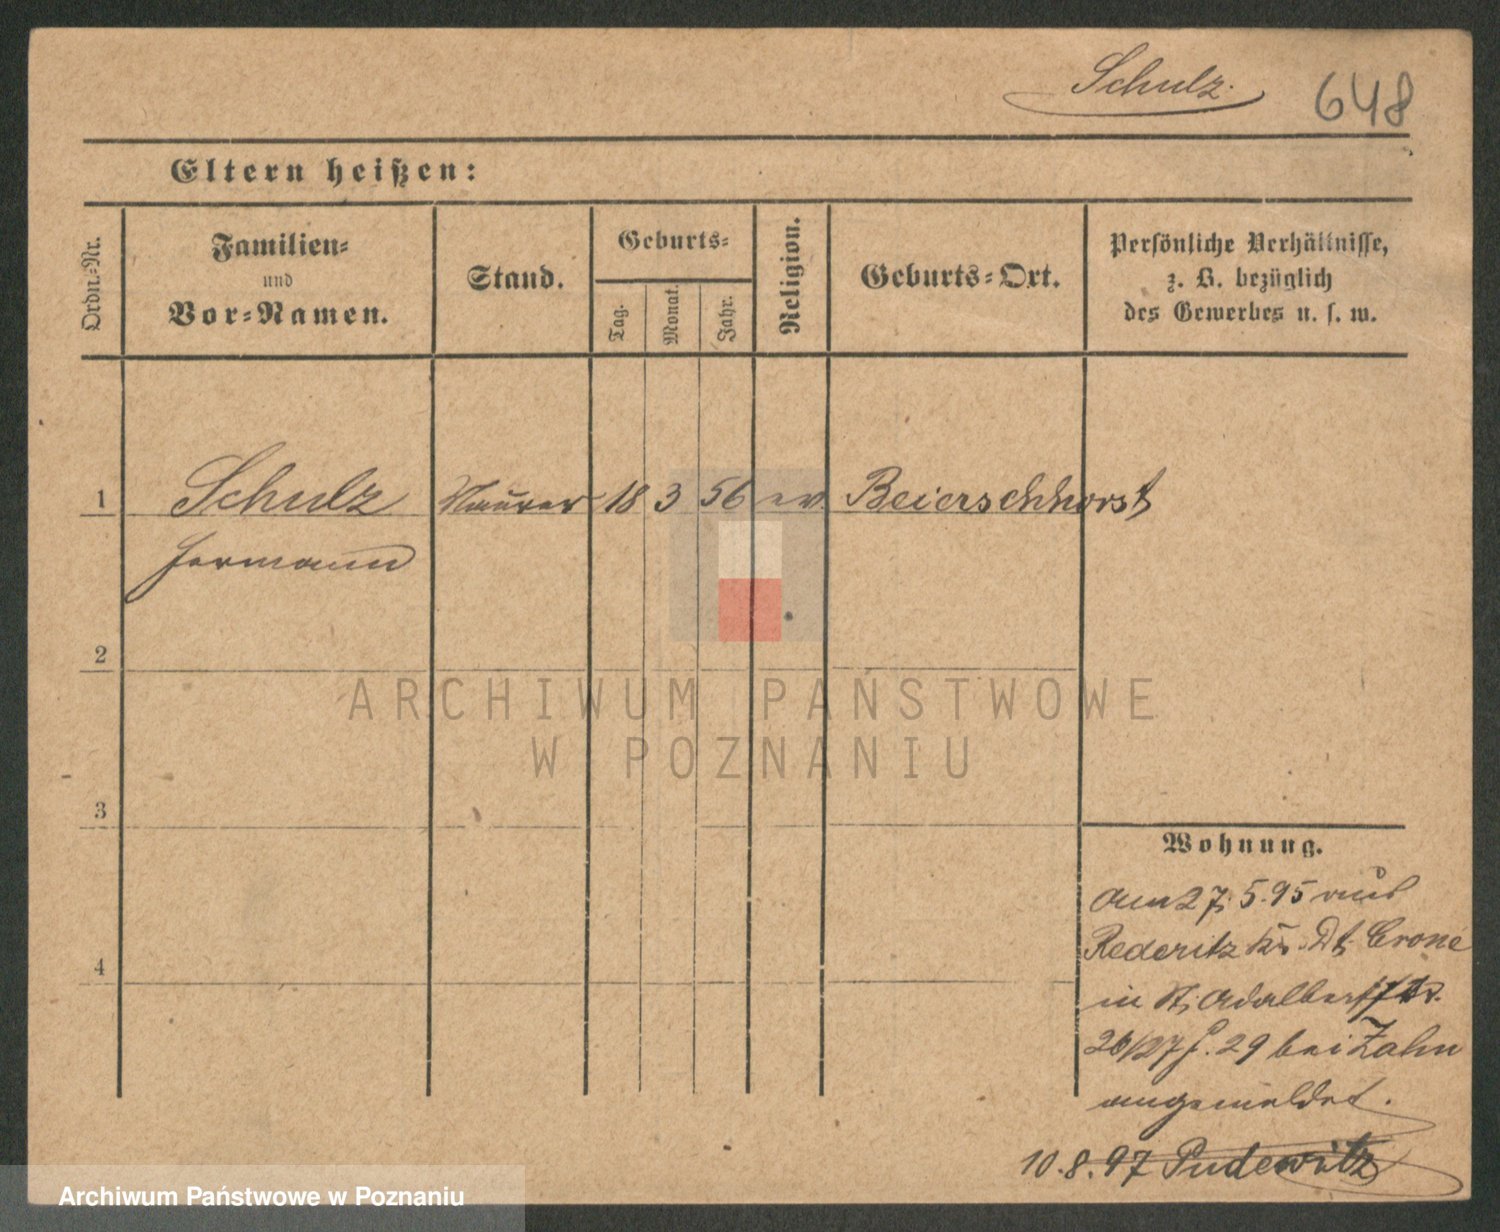 Schulz.
648
Eltern heißen:
Ordn.=Nr.
Familien=
und
Vor=Namen.
Stand.
Geburts=
Tag.
Monat.
Jahr.
Religion.
Geburts=Ort.
Persönliche Verhältnisse,
z. B. bezüglich
des Gewerbes u. s. w.
1 Schulz Maurer 18 3 56 ev. Beierschhorst
Hermann
2
ARCHIWUM PAŃSTWOWE
W POZNANIU
3
Wohnung.
am 27. 5. 95 aus
Rederitz Kr. Dt. Crone
4
in St. Adalbertstr.
26/27 J. 29 bei Zahn
angemeldet.
10. 8. 97 Pudewitz
Archiwum Państwowe w Poznaniu